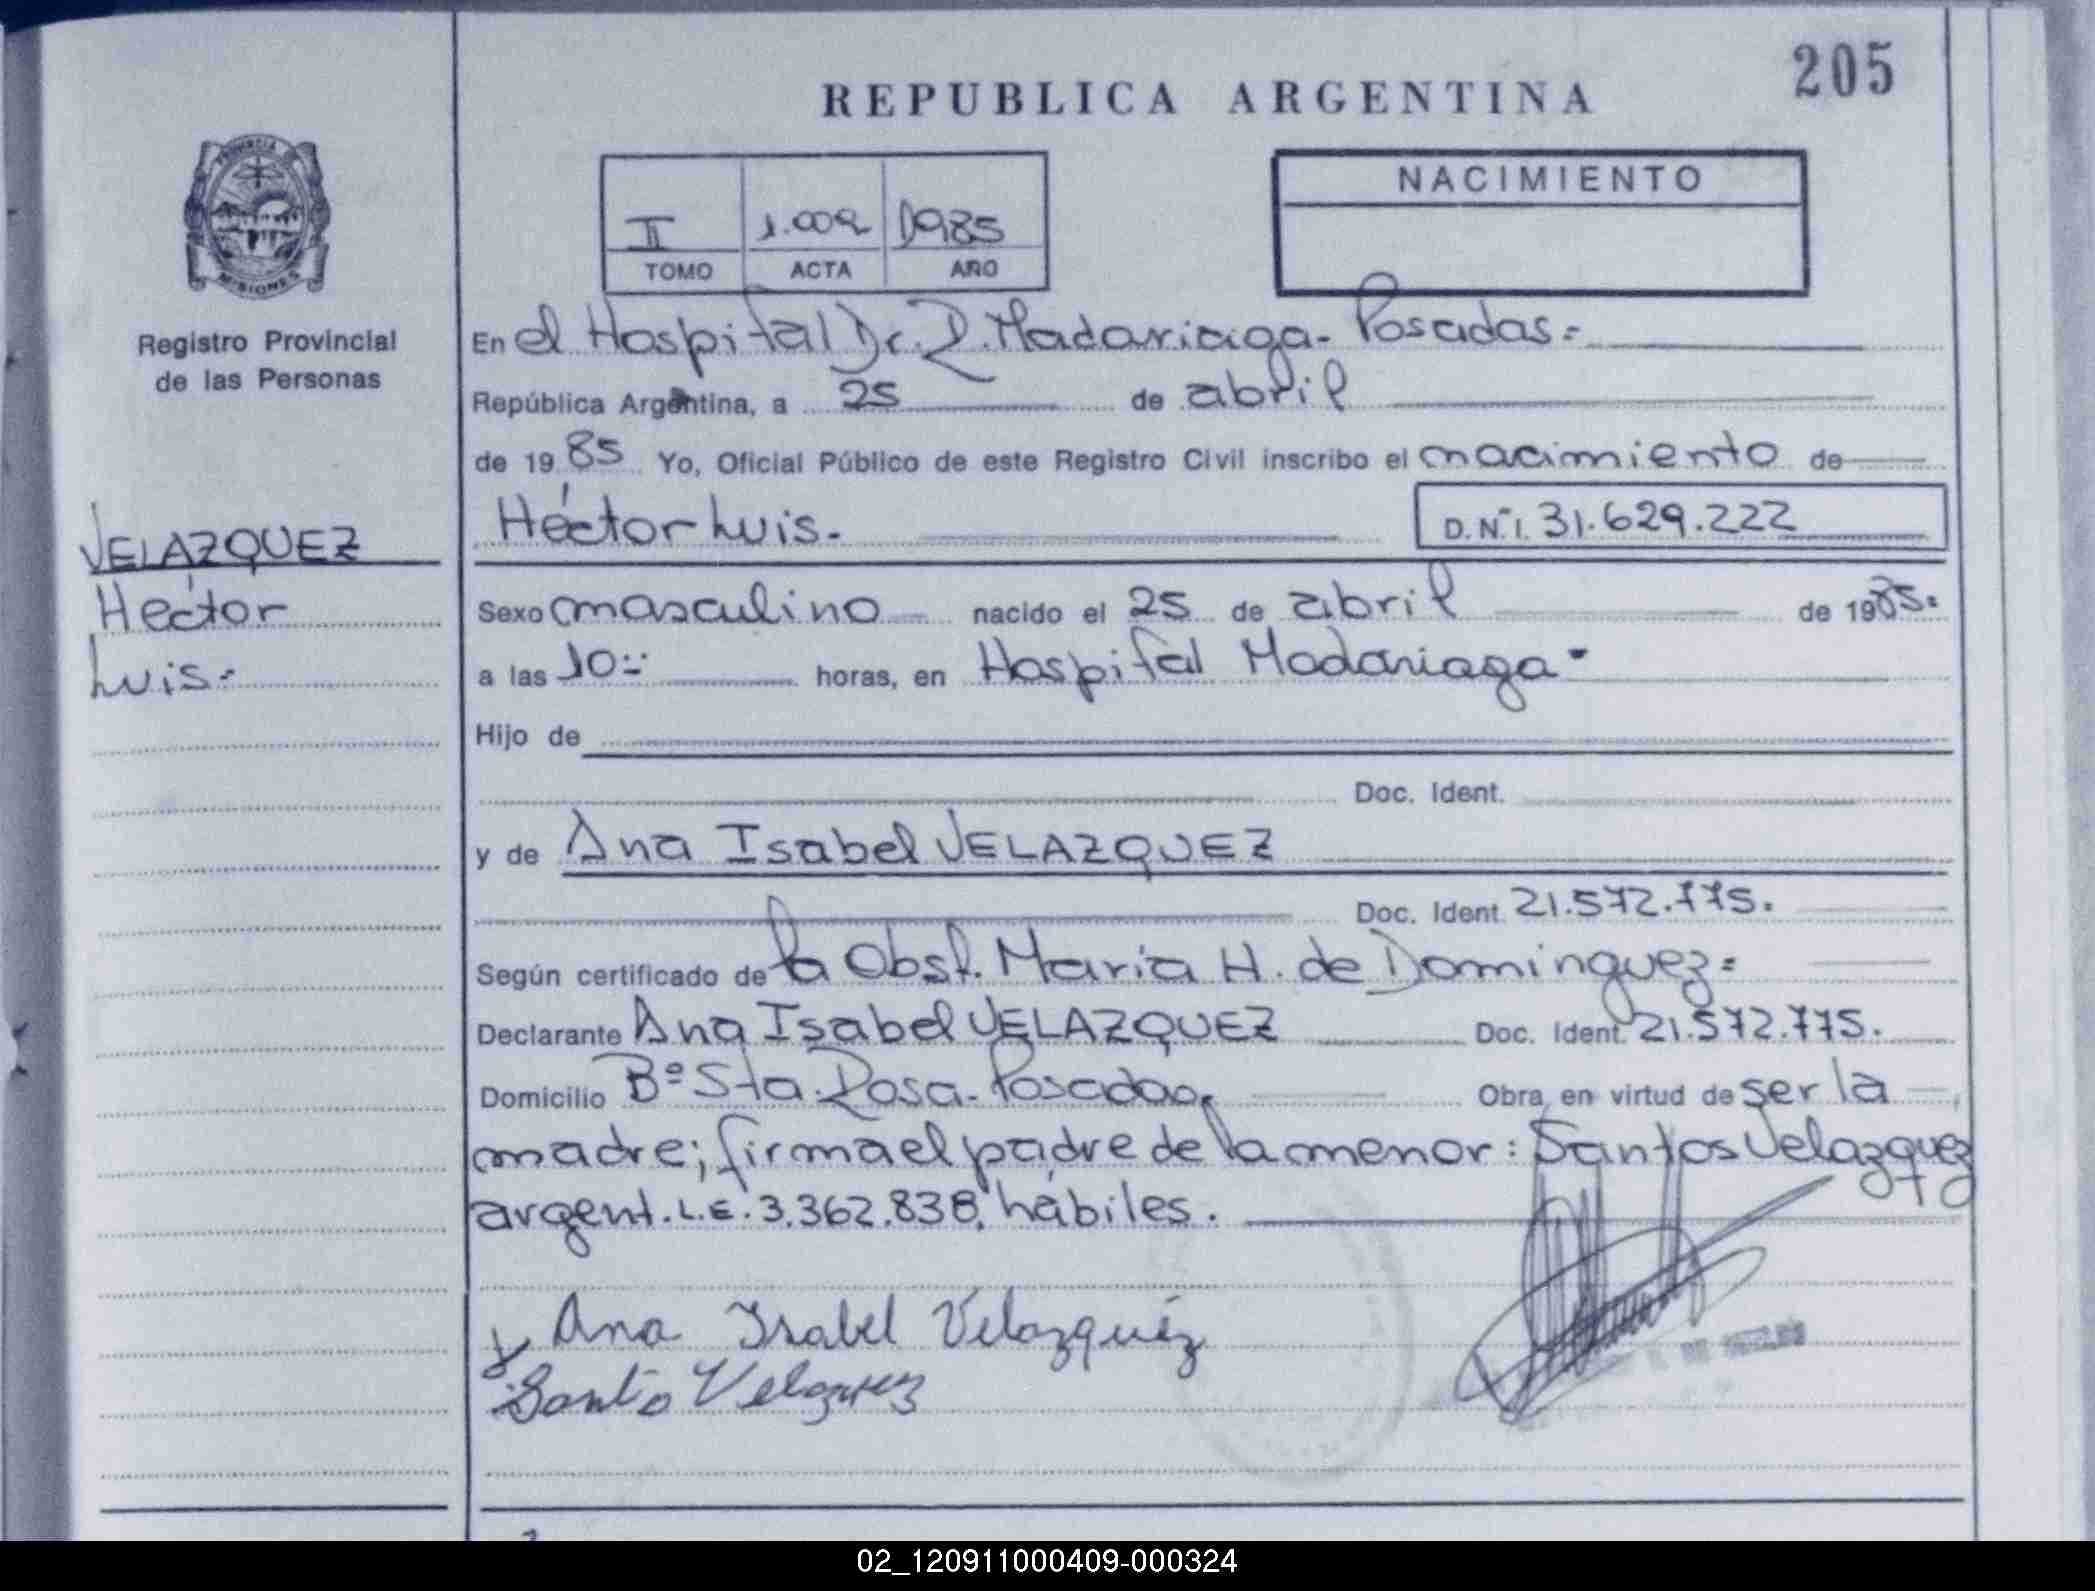 205
REPUBLICA ARGENTINA
PROVINCIA
MISIONES
II 1.002 1985
TOMO ACTA AÑO
NACIMIENTO
Registro Provincial
de las Personas
En el Hospital Dr. R. Madariaga- Posadas=
República Argentina, a 25 de abril
de 1985 Yo, Oficial Público de este Registro Civil inscribo el nacimiento de
VELAZQUEZ
Héctor
Luis=
Héctor Luis. D.N.I. 31.629.222
Sexo masculino nacido el 25 de abril de 1985.
a las 10= horas, en Hospital Madariaga-
Hijo de
Doc. Ident.
y de Ana Isabel VELAZQUEZ
Doc. Ident 21.572.775.
Según certificado de la Obst. María H. de Dominguez=
Declarante Ana Isabel VELAZQUEZ Doc. Ident. 21.572.775.
Domicilio Bº Sta. Rosa- Posadas. Obra en virtud de ser la
madre; firma el padre de la menor: Santos Velazquez
argent. L.E. 3.362.838, hábiles.
Ana Isabel Velazquéz
Santo Velazquez
02_120911000409-000324